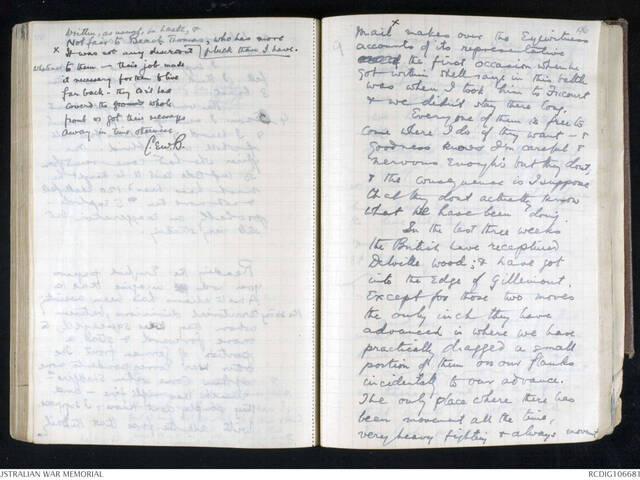 Written, as usual, in haste, &
Not fair to Beach Thomas, who has more
pluck than I have.
x It was not any discredit
to them — their job made
it necessary for them to live
far back. they cd not have
covered the ground whole
front or got their messages
away in time otherwise.
C.E.W.B.
Mail x makes over the Eyewitness
accounts of its representative
the first occasion when he
got within shell range in this battle
was when I took him to Fricourt
& we didn't stay there long.
Everyone of them is free to
come where I do if they want — &
goodness knows I'm careful &
nervous enough; but they dont,
& the consequence is I suppose
that they dont actually know
what we have been doing.
In the last three weeks
the British have recaptured
Delville wood; & have got
into the edge of Guillemont.
Except for those two moves
the only inch they have
advanced is where we have
practically dragged a small
portion of them on our flanks
incidental to our advance.
The only place where there has
been movement all the time,
very heavy fighting & always movemt
USTRALIAN WAR MEMORIAL
RCDIG106681